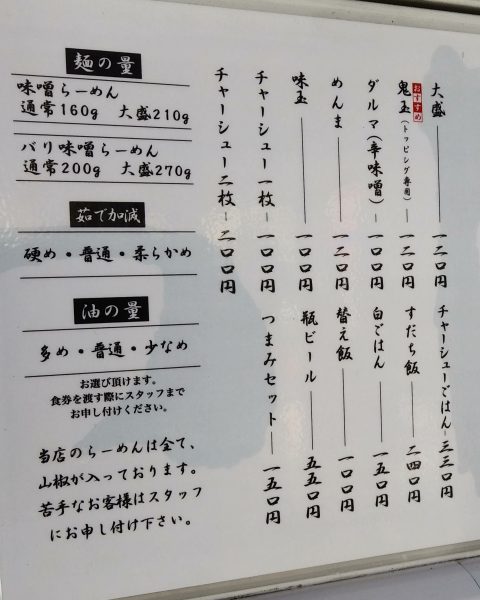 大盛 一二〇円
おすすめ
鬼玉(トッピング専用) 一二〇円
ダルマ(辛味噌) 一〇〇円
めんま 一二〇円
味玉 一〇〇円
チャーシュー一枚 一〇〇円
チャーシュー二枚 二〇〇円
チャーシューごはん 三三〇円
すだち飯 二四〇円
白ごはん 一五〇円
替え飯 一〇〇円
瓶ビール 五五〇円
つまみセット 一五〇円
麺の量
味噌らーめん
通常160g 大盛210g
バリ味噌らーめん
通常200g 大盛270g
茹で加減
硬め・普通・柔らかめ
油の量
多め・普通・少なめ
お選び頂けます。
食券を渡す際にスタッフまで
お申し付けください。
当店のらーめんは全て、
山椒が入っております。
苦手なお客様はスタッフ
にお申し付け下さい。